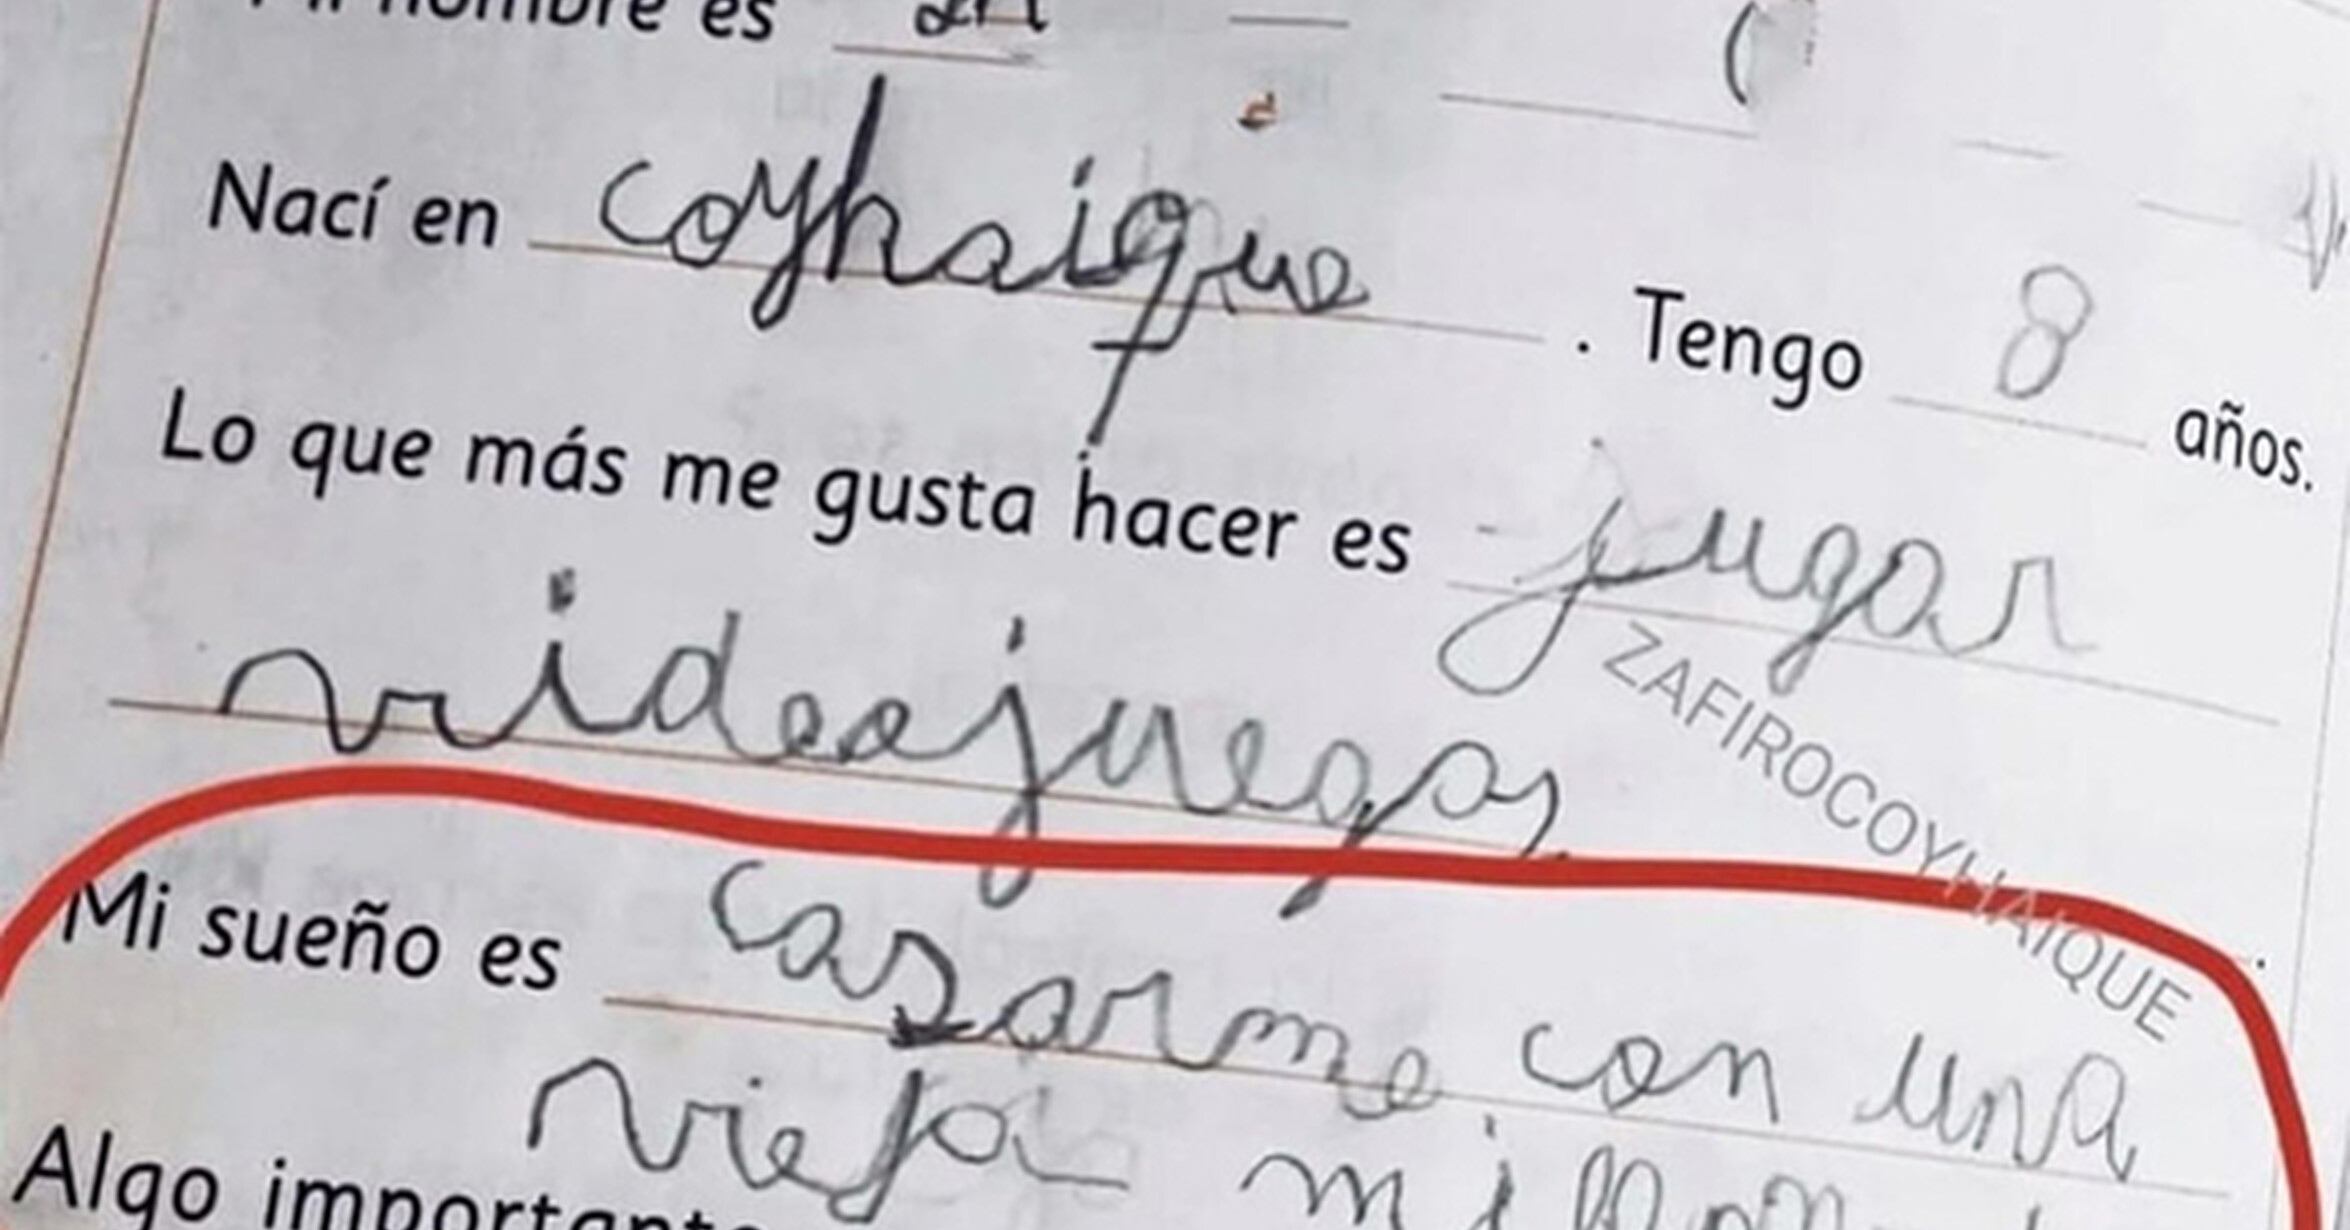 Mi nombre es
Nací en coyhaique . Tengo 8 años.
Lo que más me gusta hacer es jugar
videojuegos.
ZAFIROCOYHAIQUE
Mi sueño es casarme con una
vieja
Algo importante